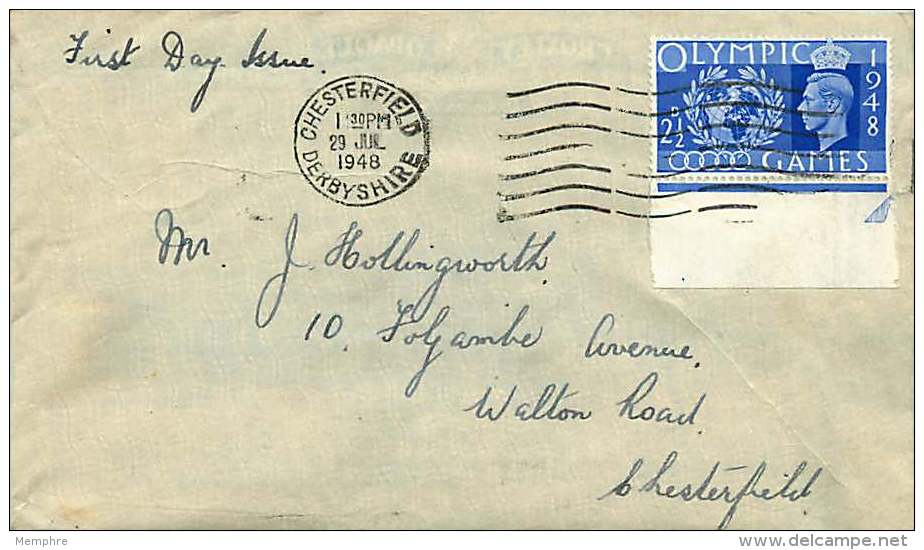 First Day Issue.
CHESTERFIELD
1 30 PM
29 JUL
1948
DERBYSHIRE
OLYMPIC
1948
2½D
GAMES
Mr. J. Hollingworth
10, Foljambe Avenue,
Walton Road,
Chesterfield
Memphre
delcampe.net